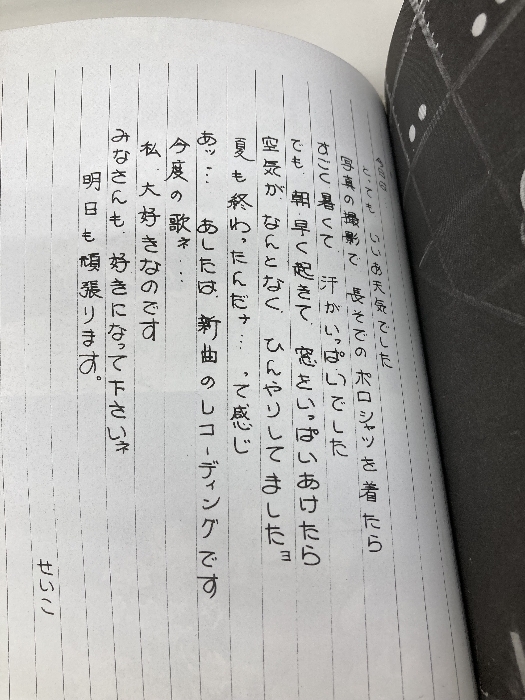 今日
とっても いいお天気でした
写真の撮影で 長そでのポロシャツを着たら
すごく暑くて 汗がいっぱいでした
でも、朝早く起きて 窓をいっぱいあけたら
空気が なんとなく、ひんやりしてましたョ
夏も終わったんだナ… って感じ
あッ… あしたは、新曲のレコーディングです
今度の歌ネ…
私、大好きなのです
みなさんも、好きになって下さいネ
明日も頑張ります。
せいこ